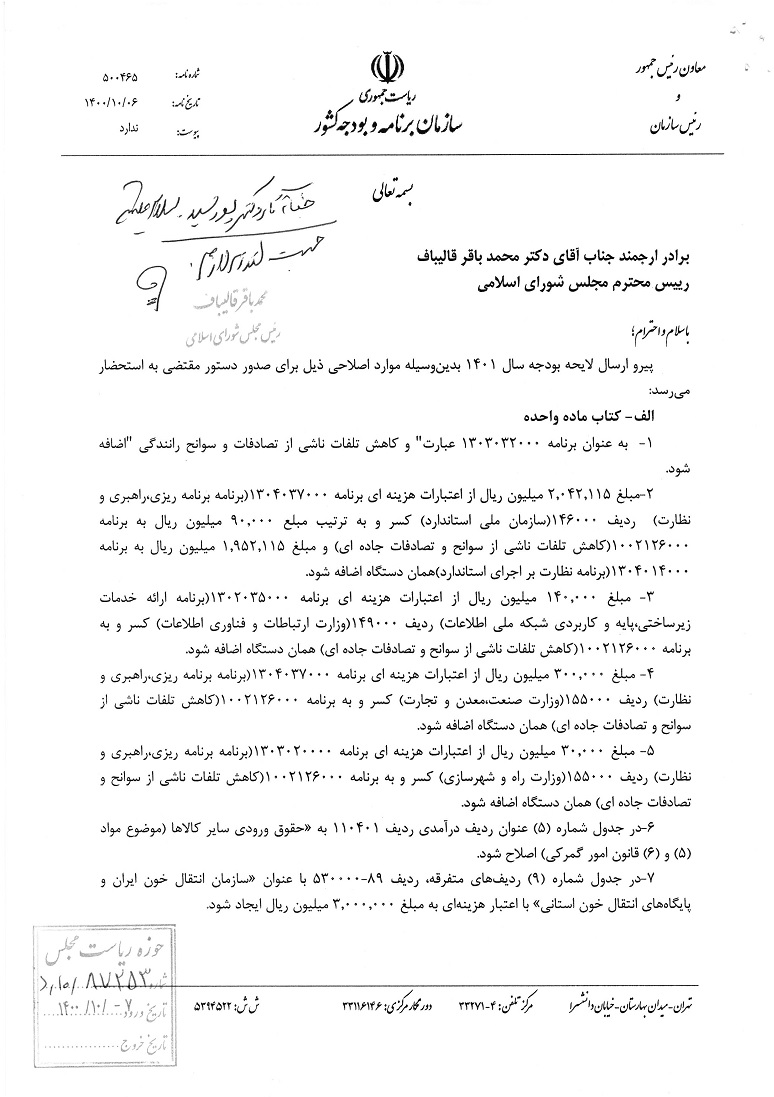 معاون رئیس جمهور
و
رئیس سازمان
ریاست جمهوری
سازمان برنامه و بودجه کشور
شماره نامه: ۵۰۰۴۶۵
تاریخ نامه: ۱۴۰۰/۱۰/۰۶
پیوست: ندارد
بسمه تعالی
جناب آقای دکتر پورسید. سلام علیکم
جهت اقدام لازم.
محمد باقر قالیباف
رئیس مجلس شورای اسلامی
برادر ارجمند جناب آقای دکتر محمد باقر قالیباف
رییس محترم مجلس شورای اسلامی
باسلام و احترام؛
پیرو ارسال لایحه بودجه سال ۱۴۰۱ بدین‌وسیله موارد اصلاحی ذیل برای صدور دستور مقتضی به استحضار
می‌رسد:
الف- کتاب ماده واحده
۱- به عنوان برنامه ۱۳۰۳۰۳۲۰۰۰ عبارت" و کاهش تلفات ناشی از تصادفات و سوانح رانندگی "اضافه
شود.
۲-مبلغ ۲,۰۴۲,۱۱۵ میلیون ریال از اعتبارات هزینه ای برنامه ۱۳۰۴۰۳۷۰۰۰(برنامه برنامه ریزی،راهبری و
نظارت) ردیف ۱۴۶۰۰۰(سازمان ملی استاندارد) کسر و به ترتیب مبلغ ۹۰,۰۰۰ میلیون ریال به برنامه
۱۰۰۲۱۲۶۰۰۰(کاهش تلفات ناشی از سوانح و تصادفات جاده ای) و مبلغ ۱,۹۵۲,۱۱۵ میلیون ریال به برنامه
۱۳۰۴۰۱۴۰۰۰(برنامه نظارت بر اجرای استاندارد)همان دستگاه اضافه شود.
۳- مبلغ ۱۴۰,۰۰۰ میلیون ریال از اعتبارات هزینه ای برنامه ۱۳۰۲۰۳۵۰۰۰(برنامه ارائه خدمات
زیرساختی،پایه و کاربردی شبکه ملی اطلاعات) ردیف ۱۴۹۰۰۰(وزارت ارتباطات و فناوری اطلاعات) کسر و به
برنامه ۱۰۰۲۱۲۶۰۰۰(کاهش تلفات ناشی از سوانح و تصادفات جاده ای) همان دستگاه اضافه شود.
۴- مبلغ ۳۰۰,۰۰۰ میلیون ریال از اعتبارات هزینه ای برنامه ۱۳۰۴۰۳۷۰۰۰(برنامه برنامه ریزی،راهبری و
نظارت) ردیف ۱۵۵۰۰۰(وزارت صنعت،معدن و تجارت) کسر و به برنامه ۱۰۰۲۱۲۶۰۰۰(کاهش تلفات ناشی از
سوانح و تصادفات جاده ای) همان دستگاه اضافه شود.
۵- مبلغ ۳۰,۰۰۰ میلیون ریال از اعتبارات هزینه ای برنامه ۱۳۰۳۰۲۰۰۰۰(برنامه برنامه ریزی،راهبری و
نظارت) ردیف ۱۵۵۰۰۰(وزارت راه و شهرسازی) کسر و به برنامه ۱۰۰۲۱۲۶۰۰۰(کاهش تلفات ناشی از سوانح و
تصادفات جاده ای) همان دستگاه اضافه شود.
۶-در جدول شماره (۵) عنوان ردیف درآمدی ردیف ۱۱۰۴۰۱ به «حقوق ورودی سایر کالاها (موضوع مواد
(۵) و (۶) قانون امور گمرکی) اصلاح شود.
۷-در جدول شماره (۹) ردیف‌های متفرقه، ردیف ۸۹-۵۳۰۰۰۰ با عنوان «سازمان انتقال خون ایران و
پایگاه‌های انتقال خون استانی» با اعتبار هزینه‌ای به مبلغ ۳,۰۰۰,۰۰۰ میلیون ریال ایجاد شود.
حوزه ریاست مجلس
شماره ۸۷۲۵۳
تاریخ ورود ۱۴۰۰/۱۰/۰۷
تاریخ خروج
تهران-میدان بهارستان-خیابان دانشسرا مرکز تلفن: ۴-۳۳۲۷۱ دورنگار مرکزی: ۳۳۱۱۶۱۴۶ ش ش: ۵۳۹۴۵۲۲